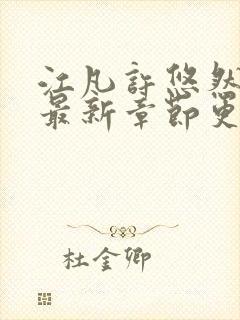 江凡许悠然
最新章节更
杜金卿